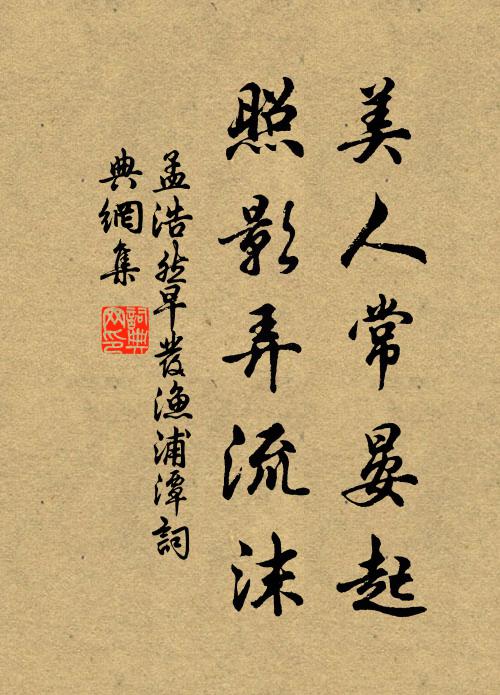 美人常晏起
照影弄流沫
孟浩然早發漁浦潭詞
典網集
詞典
网印